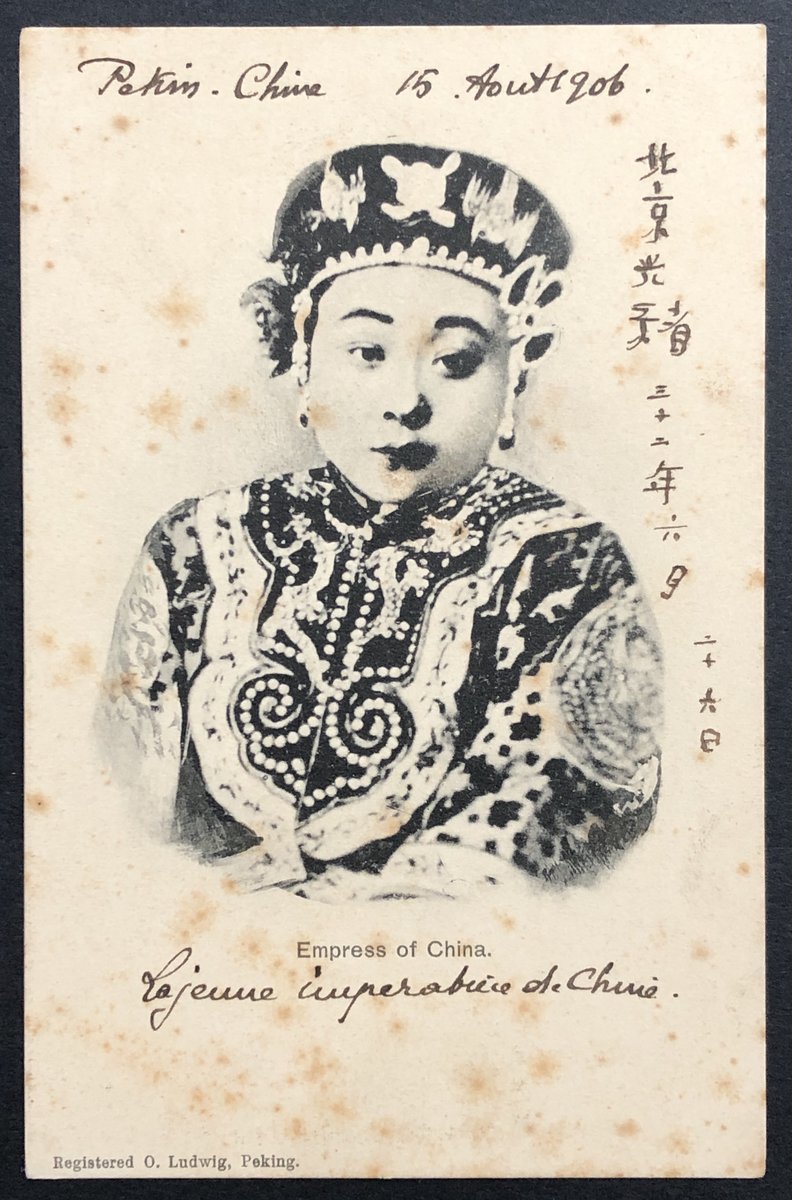 Pekin - Chine 15 Aout 1906.
北京光緒三十二年六月
二十六日
Empress of China.
La jeune impératrice de Chine.
Registered O. Ludwig, Peking.